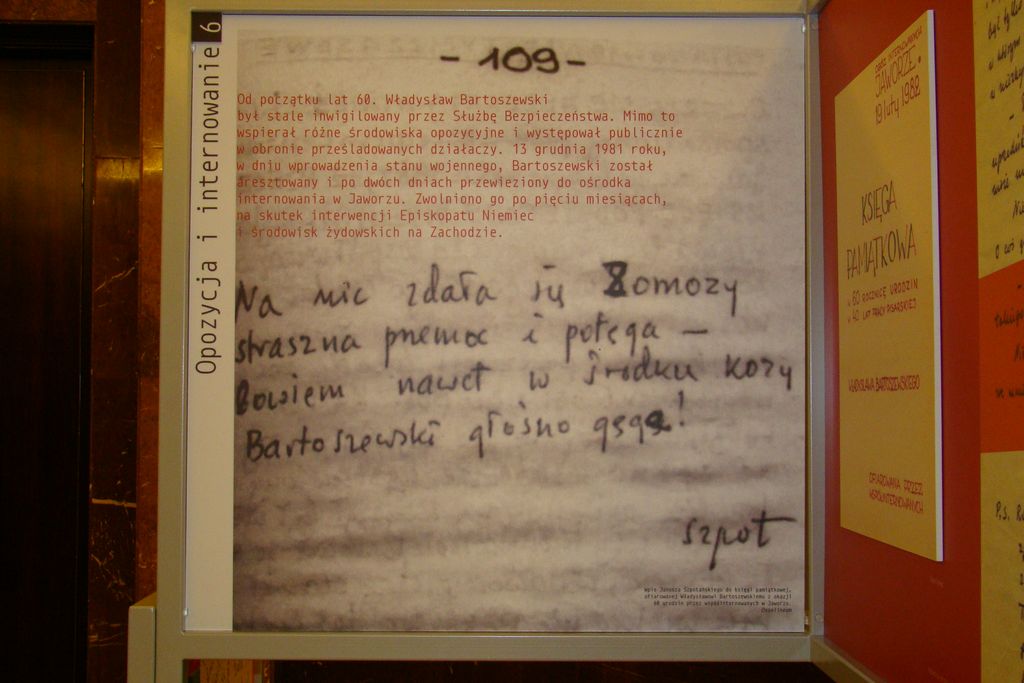 Opozycja i internowanie 6
- 109 -
Od początku lat 60. Władysław Bartoszewski
był stale inwigilowany przez Służbę Bezpieczeństwa. Mimo to
wspierał różne środowiska opozycyjne i występował publicznie
w obronie prześladowanych działaczy. 13 grudnia 1981 roku,
w dniu wprowadzenia stanu wojennego, Bartoszewski został
aresztowany i po dwóch dniach przewieziony do ośrodka
internowania w Jaworzu. Zwolniono go po pięciu miesiącach,
na skutek interwencji Episkopatu Niemiec
i środowisk żydowskich na Zachodzie.
Na nic zdała się Zomozy
straszna przemoc i potęga —
Bowiem nawet w środku kozy
Bartoszewski głośno gęga!
szpot
Wpis Janusza Szpotańskiego do księgi pamiątkowej,
ofiarowanej Władysławowi Bartoszewskiemu z okazji
60 urodzin przez współinternowanych w Jaworzu.
Ossolineum
OBÓZ INTERNOWANYCH
JAWORZE.
19 luty 1982
KSIĘGA
PAMIĄTKOWA
w 60 ROCZNICĘ URODZIN
i 40 LAT PRACY PISARSKIEJ
WŁADYSŁAWA BARTOSZEWSKIEGO
OFIAROWANA PRZEZ
WSPÓŁINTERNOWANYCH
być tylko
P.S.